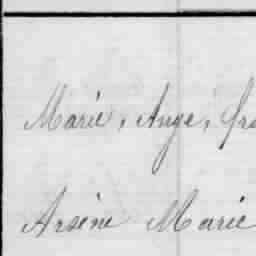 Marie, Ange, Fra
Arsène Marie